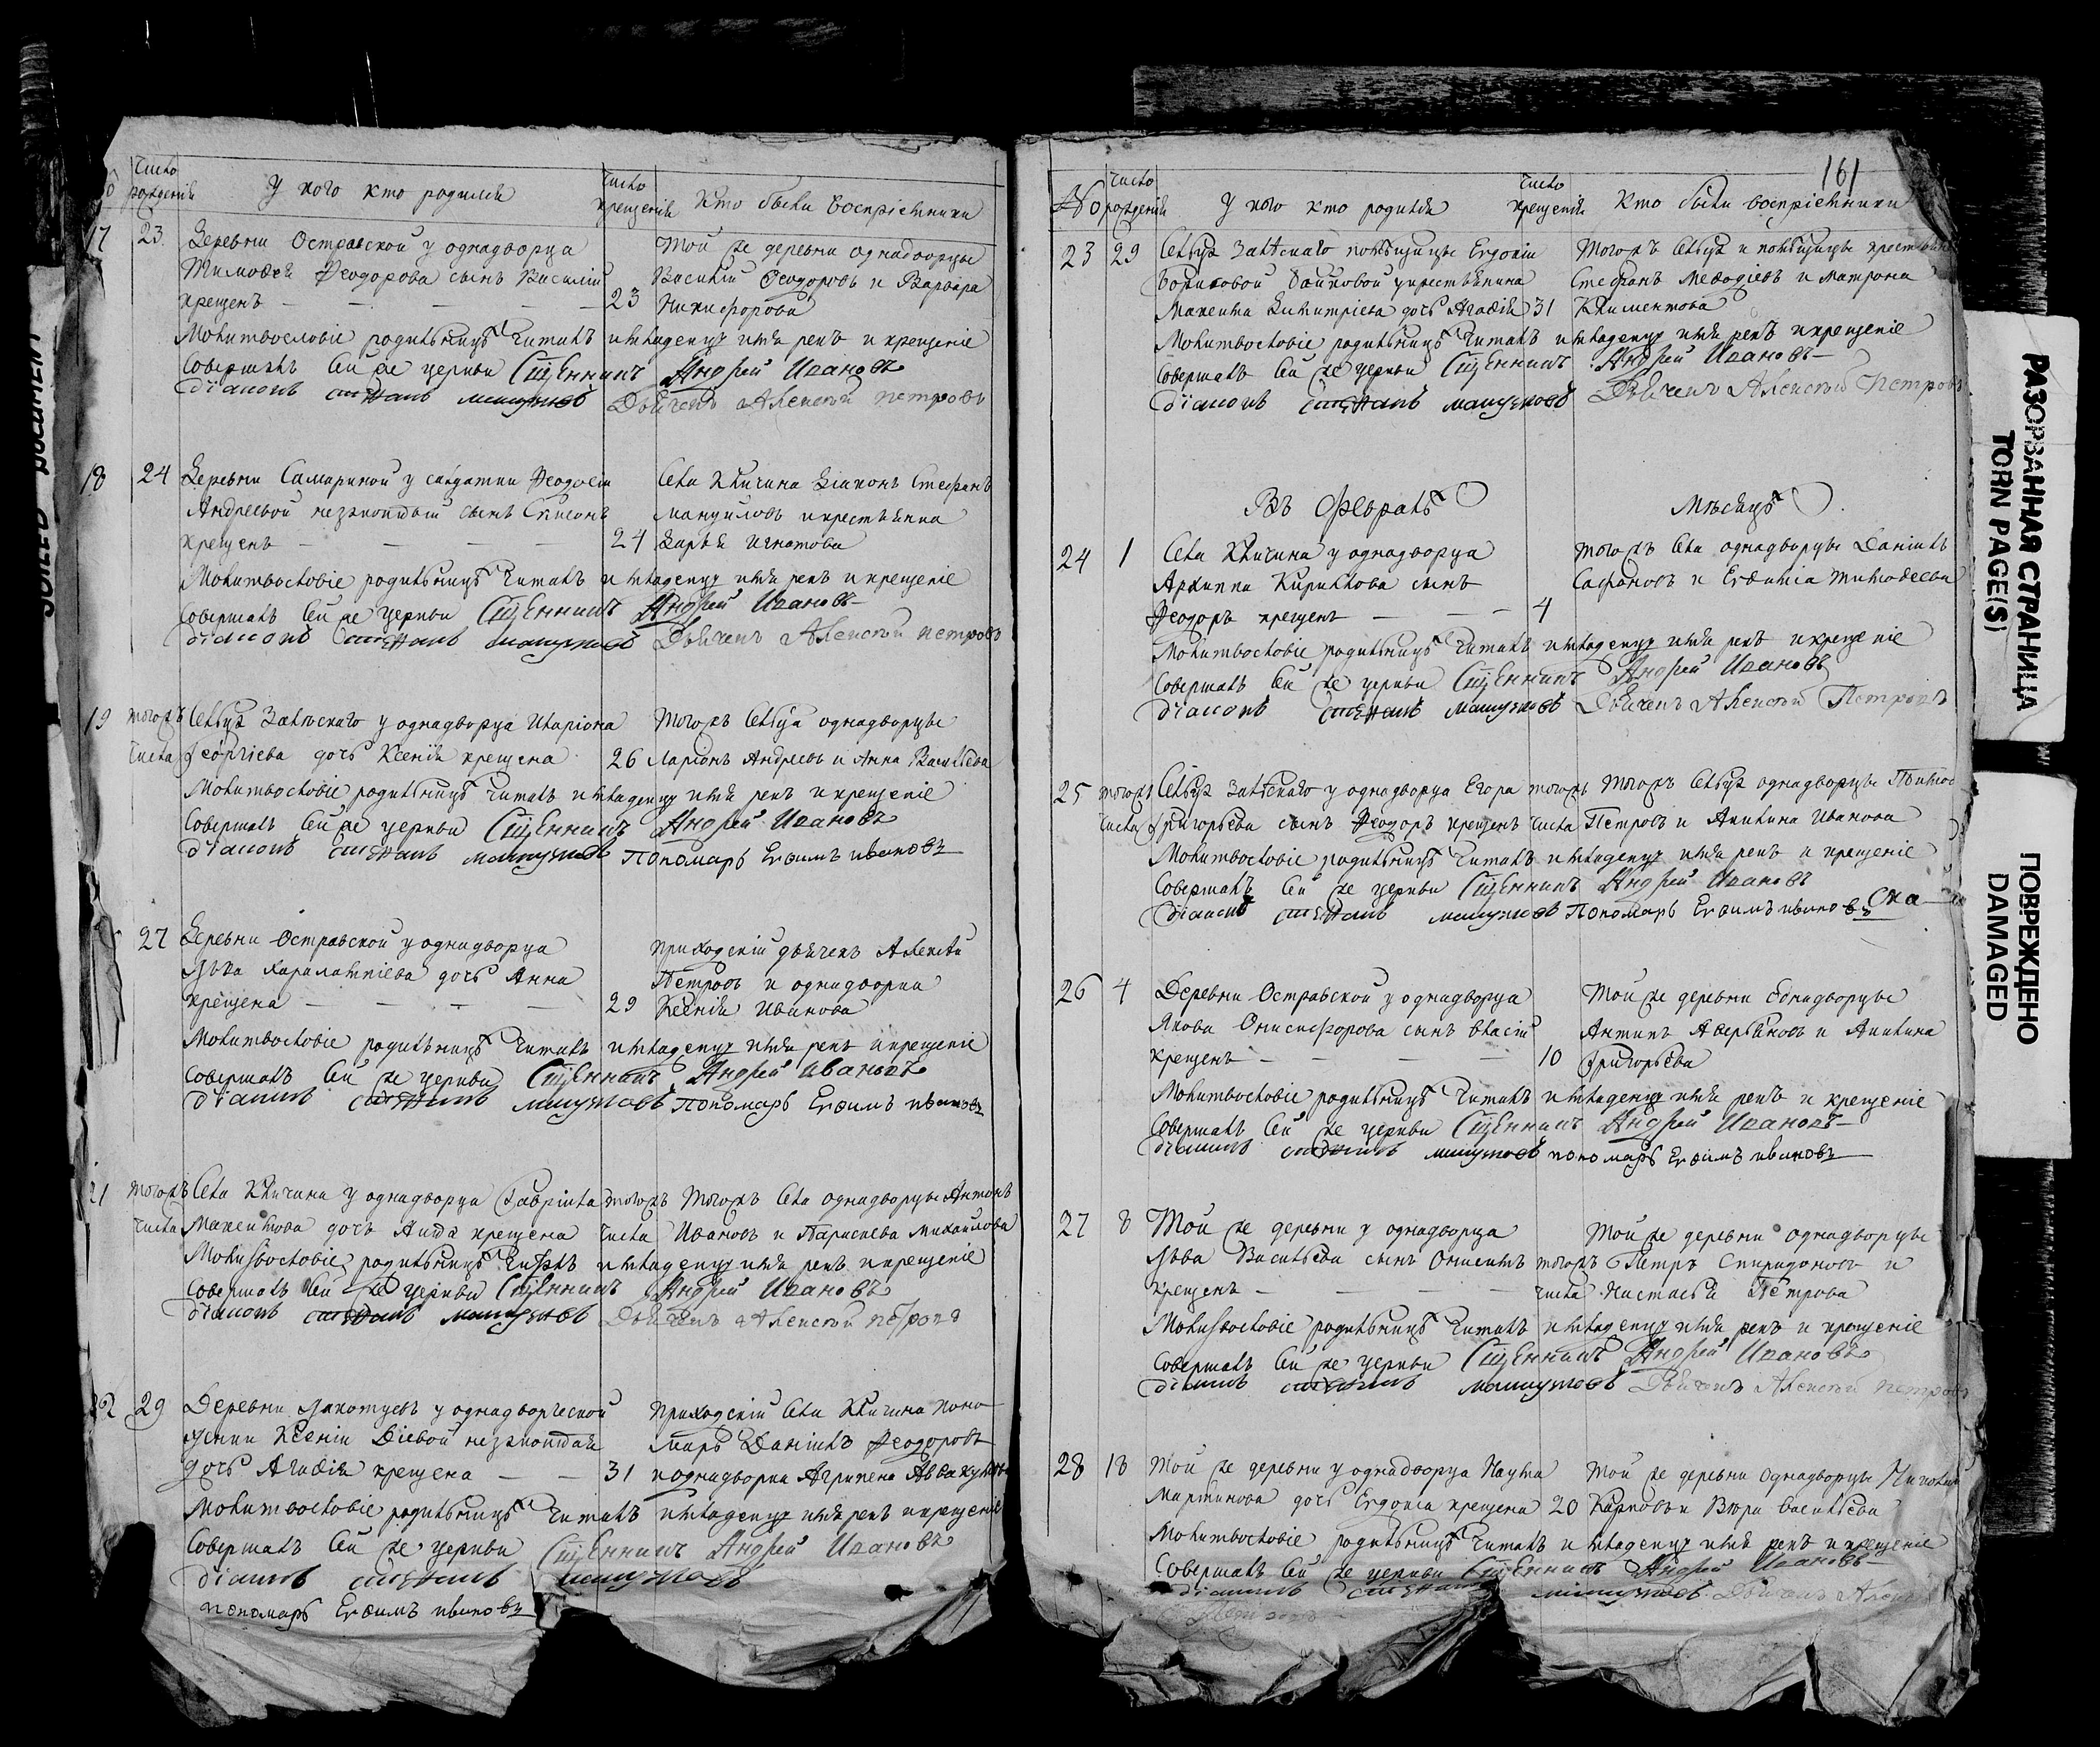 Число
рожденія
У кого кто родился
Число
крещенія
Кто были воспріемники
17
23
Деревни Островской у однадворца
Тимофея Феодорова сынъ Василій
крещенъ
23
Той же деревни однадворцы
Василій Феодоровъ и Варвара
Никифорова
Молитвословіе родильницѣ читалъ и младенцу имя рекъ и крещеніе
совершалъ сей же церкви Сщенникъ Андрей Ивановъ
діаконъ Стефанъ Мануиловъ Дьячекъ Алексей Петровъ
18
24
Деревни Самариной у салдатки Феодосіи
Андреевой незаконной сынъ
крещенъ
24
Села Кличина Діаконъ Стефанъ
Мануиловъ и крестьянка
Дарья Игнатова
Молитвословіе родильницѣ читалъ и младенцу имя рекъ и крещеніе
совершалъ сей же церкви Сщенникъ Андрей Ивановъ
діаконъ Стефанъ Мануиловъ Дьячекъ Алексей Петровъ
19
тогожъ
числа
Сельца Зальскаго у однадворца Иларіона
Георгіева дочь Ксенія крещена
26
Тогожъ сельца однадворцы
Ларіонъ Андреевъ и Анна Васильева
Молитвословіе родильницѣ читалъ и младенцу имя рекъ и крещеніе
совершалъ сей же церкви Сщенникъ Андрей Ивановъ
діаконъ Стефанъ Мануиловъ Пономарь Ефимъ Ивановъ
27
Деревни Островской у однадворца
Льва Харалампіева дочь Анна
крещена
29
Приходскій дьячекъ Алексей
Петровъ и однадворка
Ксенія Иванова
Молитвословіе родильницѣ читалъ и младенцу имя рекъ и крещеніе
совершалъ сей же церкви Сщенникъ Андрей Ивановъ
діаконъ Стефанъ Мануиловъ Пономарь Ефимъ Ивановъ
21
тогожъ
числа
Села Кличина у однадворца Гавріила
Максимова дочь крещена
тогожъ
числа
Тогожъ села однадворцы Антонъ
Ивановъ и Параскева Михайлова
Молитвословіе родильницѣ читалъ и младенцу имя рекъ и крещеніе
совершалъ сей же церкви Сщенникъ Андрей Ивановъ
діаконъ Стефанъ Мануиловъ Дьячекъ Алексей Петровъ
22
29
Деревни у однадворческой
женки Ксеніи незаконная
дочь Агафія крещена
31
Приходскій села Кличина поно
марь Даніилъ Феодоровъ
и однадворка Агрипена Аввакумова
Молитвословіе родильницѣ читалъ и младенцу имя рекъ и крещеніе
совершалъ сей же церкви Сщенникъ Андрей Ивановъ
діаконъ Стефанъ Мануиловъ
пономарь Ефимъ Ивановъ
161
№
Число
рожденія
У кого кто родился
Число
крещенія
Кто были воспріемники
23
29
Сельца Зальскаго помѣщицы Евдокіи
крестьянина
Максима Димитріева дочь Агафія
31
Тогожъ сельца и помѣщицы
Стефанъ Мефодіевъ и Матрона
Климентова
Молитвословіе родильницѣ читалъ и младенцу имя рекъ и крещеніе
совершалъ сей же церкви Сщенникъ Андрей Ивановъ
діаконъ Стефанъ Мануиловъ Дьячекъ Алексей Петровъ
Въ Февралѣ Мѣсяцѣ
24
1
Села Кличина у однадворца
Архиппа Кирилова сынъ
Феодоръ крещенъ
4
тогожъ села однадворцы Даніилъ
Сафоновъ и Евфимія Тимофеева
Молитвословіе родильницѣ читалъ и младенцу имя рекъ и крещеніе
совершалъ сей же церкви Сщенникъ Андрей Ивановъ
діаконъ Стефанъ Мануиловъ Дьячекъ Алексей Петровъ
25
тогожъ
числа
Сельца Зальскаго у однадворца Егора
Григорьева сынъ Феодоръ крещенъ
тогожъ
числа
Тогожъ сельца однадворцы
Петровъ и Акилина Иванова
Молитвословіе родильницѣ читалъ и младенцу имя рекъ и крещеніе
совершалъ сей же церкви Сщенникъ Андрей Ивановъ
діаконъ Стефанъ Мануиловъ Пономарь Ефимъ Ивановъ
26
4
Деревни Островской у однадворца
Якова Онисифорова сынъ Власій
крещенъ
10
Той же деревни однадворцы
Антипъ Аверьяновъ и Акилина
Григорьева
Молитвословіе родильницѣ читалъ и младенцу имя рекъ и крещеніе
совершалъ сей же церкви Сщенникъ Андрей Ивановъ
діаконъ Стефанъ Мануиловъ пономарь Ефимъ Ивановъ
27
8
Той же деревни у однадворца
Льва Васильева сынъ
крещенъ
тогожъ
числа
Той же деревни однадворцы
Петръ Спиридоновъ и
Настасья Петрова
Молитвословіе родильницѣ читалъ и младенцу имя рекъ и крещеніе
совершалъ сей же церкви Сщенникъ Андрей Ивановъ
діаконъ Стефанъ Мануиловъ Дьячекъ Алексей Петровъ
28
18
Той же деревни у однадворца Наума
Мартинова дочь Евдокія крещена
20
Той же деревни однадворцы
Карповъ и Васильева
Молитвословіе родильницѣ читалъ и младенцу имя рекъ и крещеніе
совершалъ сей же церкви Сщенникъ Андрей Ивановъ
діаконъ Стефанъ Мануиловъ Дьячекъ
РАЗОРВАННАЯ СТРАНИЦА
TORN PAGE(S)
ПОВРЕЖДЕНО
DAMAGED